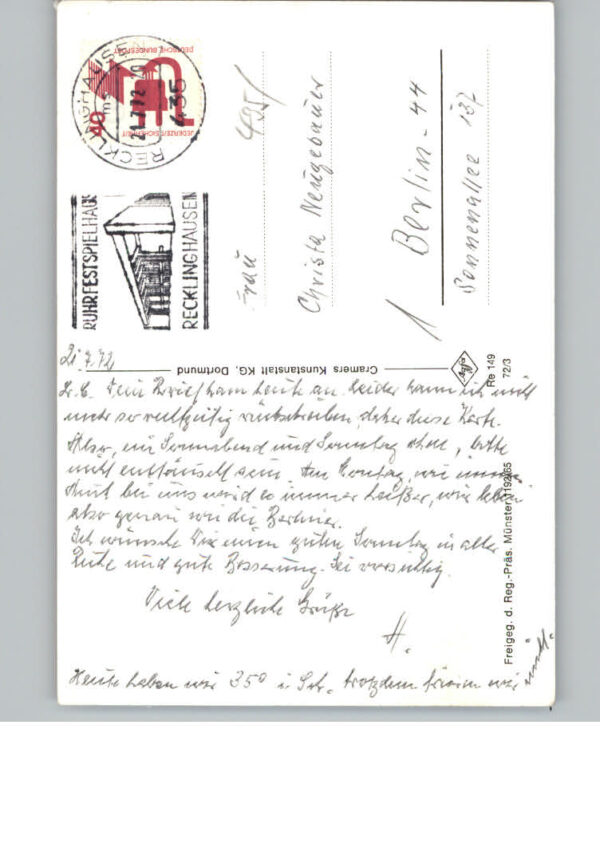 RECKLINGHAUSEN
21.7.72
435
40
JEDERZEIT SICHERHEIT
DEUTSCHE BUNDESPOST
RUHRFESTSPIELHAUS
RECKLINGHAUSEN
Frau
495/
Christa Neugebauer
1 Berlin - 44
Sonnenallee 137
Cramers Kunstanstalt KG, Dortmund
Re 149
72/3
Freigeg. d. Reg.-Präs. Münster 1192/65
21.7.72
L. C. Dein Brief kam heute an. Leider kann ich nicht
mehr so rechtzeitig zurückschreiben, daher diese Karte.
Also, ein Sonnabend und Sonntag ohne, bitte
nicht enttäuscht sein. Am Montag, wie immer.
Auch bei uns wird es immer heißer, wir leben
also genau wie die Berliner.
Ich wünsche Dir einen guten Sonntag in aller
Ruhe und gute Besserung. Sei vorsichtig.
Viele herzliche Grüße
H.
Heute haben wir 35° i. Sch. trotzdem frieren wir nicht.